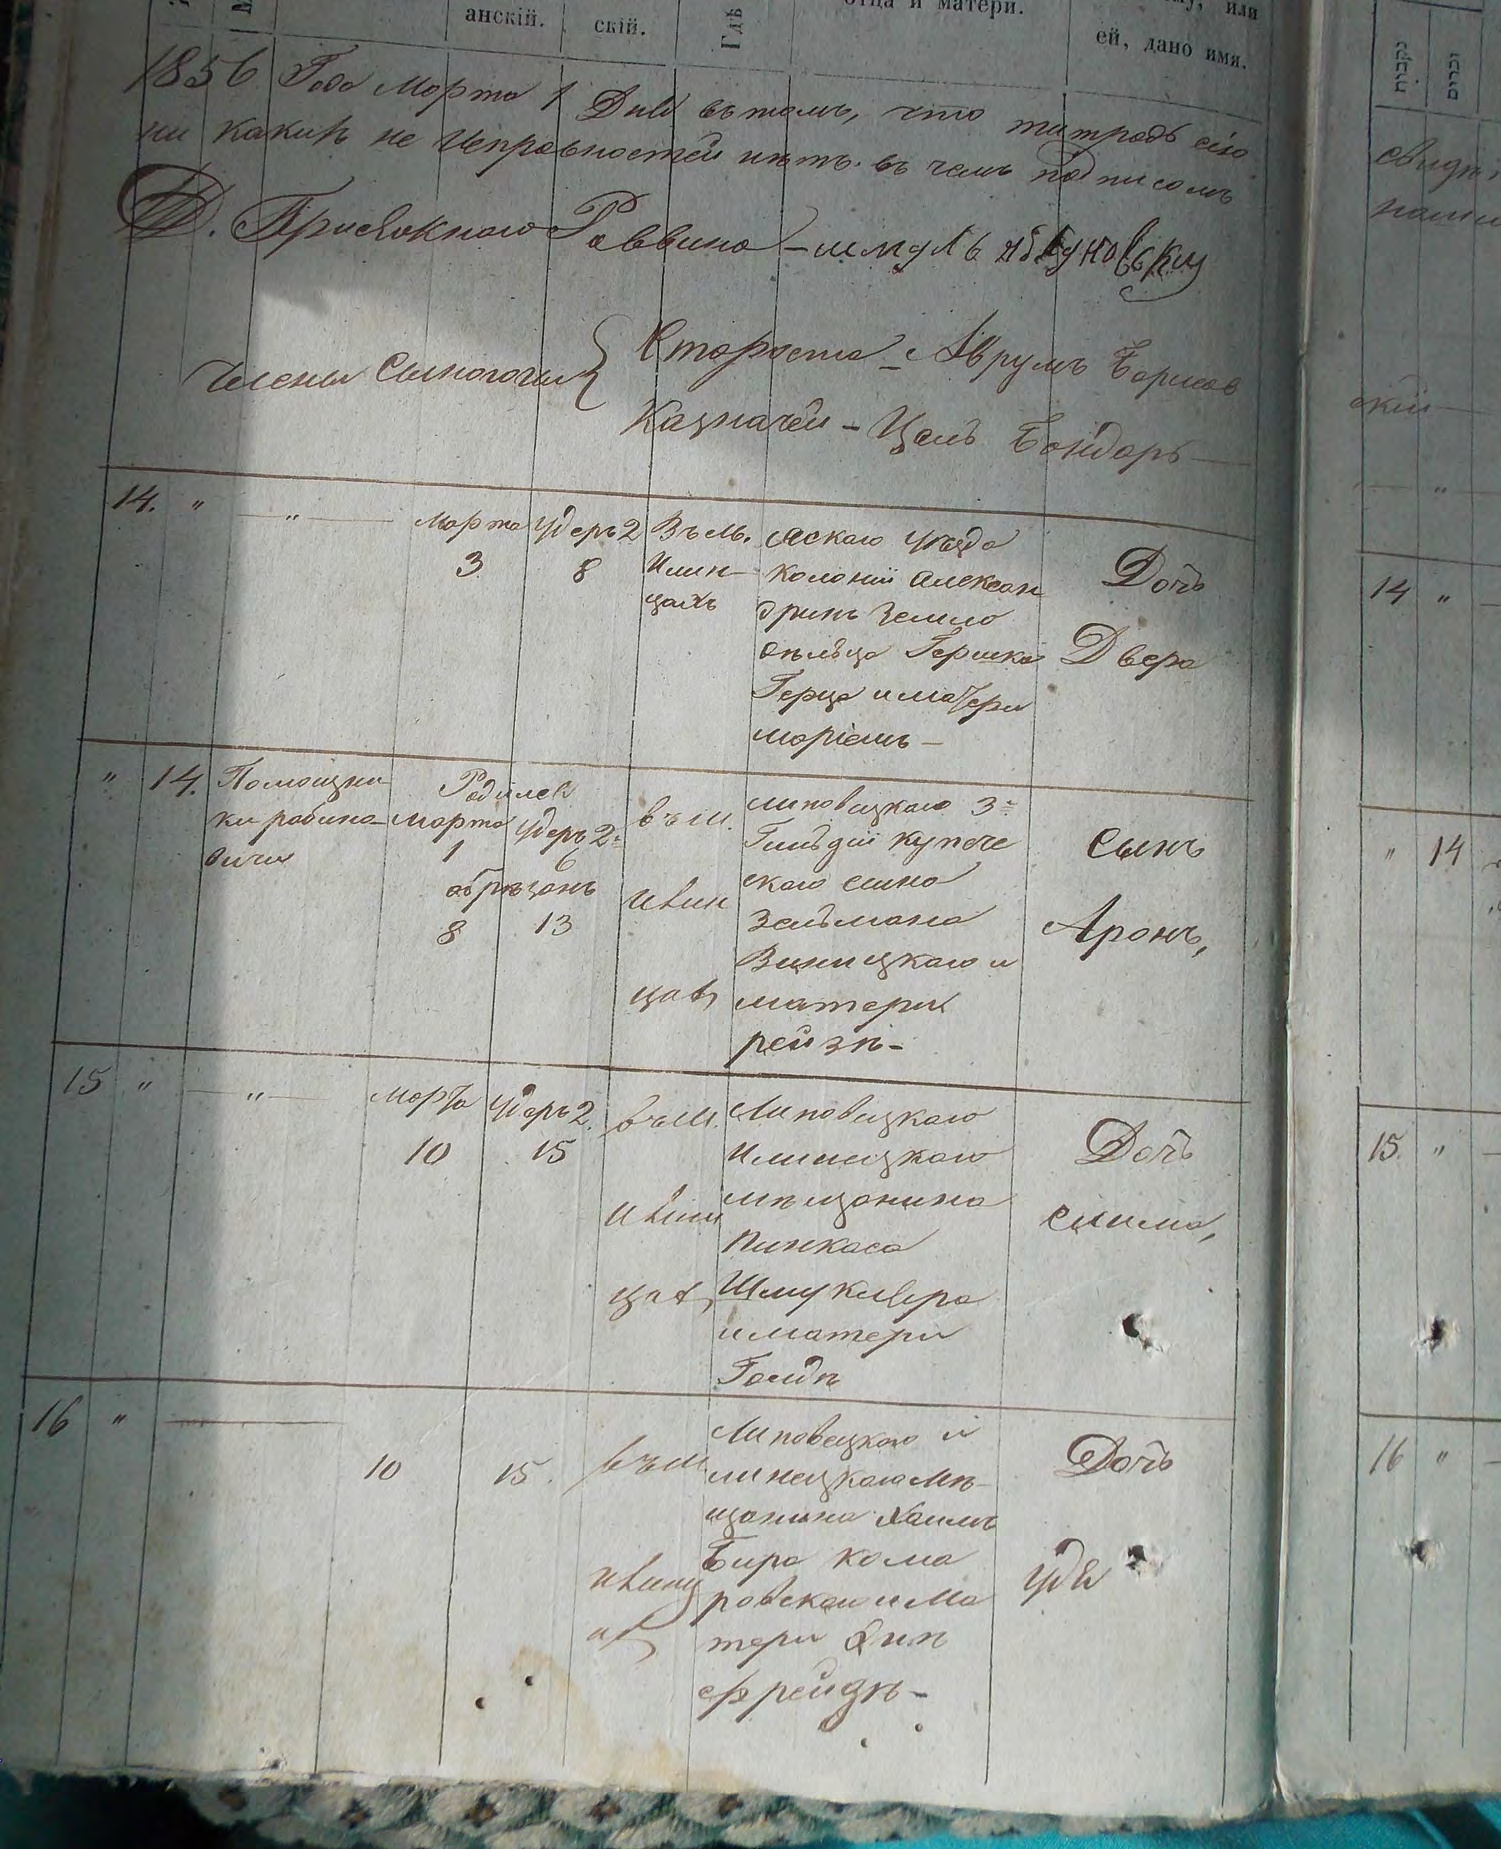 анскій.
скій.
Гдѣ
отца и матери.
или
ей, дано имя.
1856 Года Марта 1 Дня въ томъ, что титрадь сію
ни какихъ не исправностей нѣтъ. въ чемъ подписомъ
Присяжнаго Раввина – шмуль
Члены Сыногоги
Староста – Аврумъ Борисов
Казначей – Цаль Бондарь
14. " — " — Марта 3 Удеръ 2 8
Въ м. Илин-цахъ
скаго уѣзда
колоніи Александринъ Земледѣльца Гершка
Герца и матери
маріемъ –
Дочь
Двера
" 14. Помощники рабиновичи
Родился
Марта 1 Удеръ 2 6
обрѣзанъ
8 13
въ м.
Илин
цах
липовецкаго 3й
Гильдіи купече
скаго сына
Зельмана
Виницкаго и
матери
рейзѣ –
Сынъ
Аронъ,
15 " — " — Марта 10 Удеръ 2. 15
въ м.
Илин
цах
Липовецкаго
Илинецкаго
мѣщанина
Пинкаса
Шмуклера
и матери
Голдѣ
Дочь
сима,
16 " — 10 15.
въ м.
Илинц
ах
Липовецкаго и
линецкаго мѣ-
щанина Хаимъ
Бира кома
ровскаго и Ма
тери
фрейдѣ –
Дочь
Удя
נקבות
זכרים
свидѣ
ский —
— " —
14 " —
" 14
15. " —
16 " —